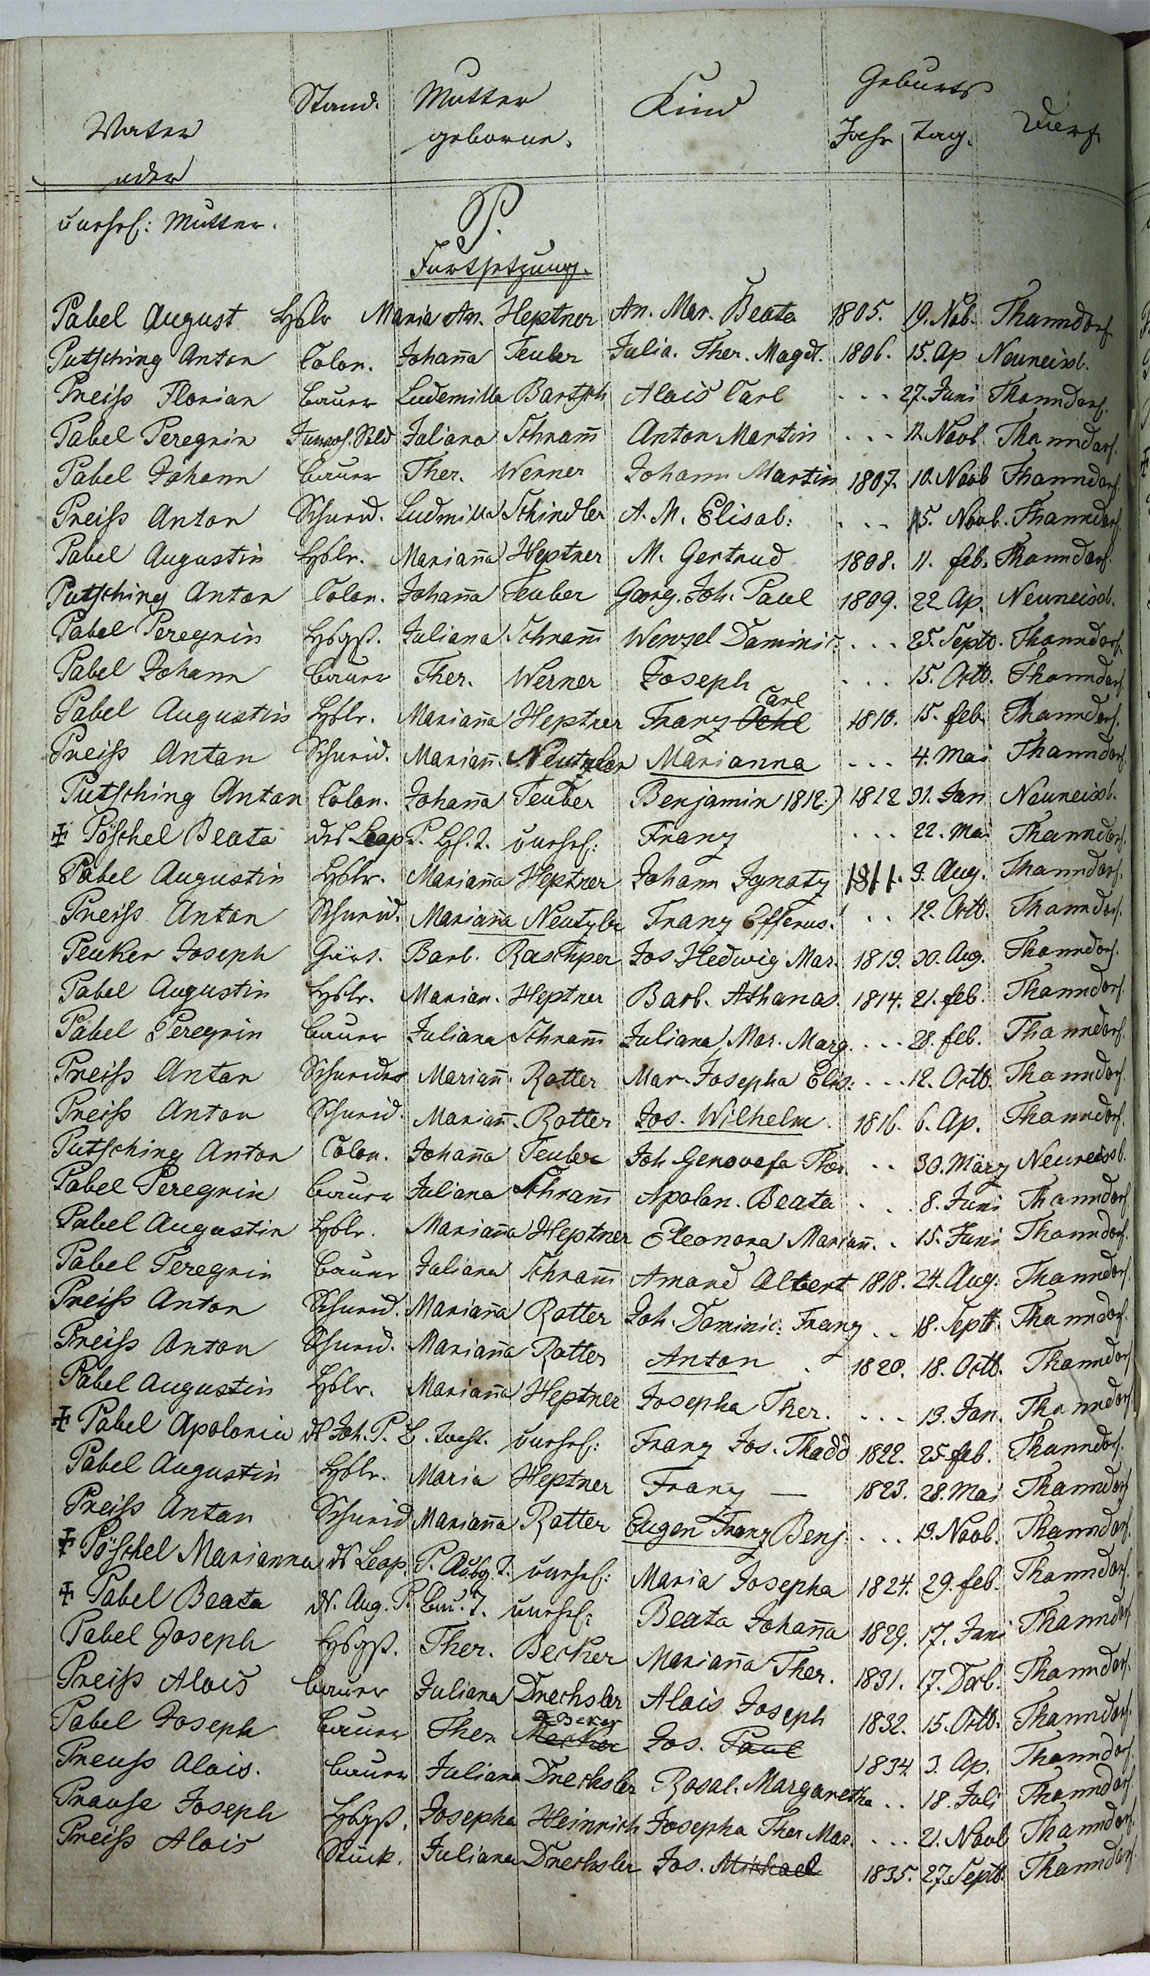 Vater
oder
unehel: Mutter.
Stand.
Mutter
geborne.
Kind
Geburts
Jahr
Tag.
Dorf
P.
Fortsetzung.
Pabel August Hslr Maria An. Heptner An. Mar. Beata 1805. 19. Nov. Thanndorf
Putsching Anton Colon. Johanna Teuber Julia. Ther. Magd. 1806. 15. Ap Neuneisd.
Preiss Florian Bauer Ludemilla Bartsch Alois Carl - - - 27. Juni Thanndorf.
Pabel Peregrin Juliana Schram̄ Anton Martin - - - 11. Novb. Thanndorf.
Pabel Johann Bauer Ther. Werner Johann Martin 1807. 10. Novb Thanndorf
Preiss Anton Schneid. Ludmilla Schindler A. M. Elisab: - - - 15. Novb. Thanndorf
Pabel Augustin Hslr. Marian̄a Heptner M. Gertrud 1808. 11. feb. Thanndorf.
Putsching Anton Colon. Johan̄a Teuber Georg. Joh. Paul 1809. 22. Ap. Neuneisd.
Pabel Peregrin Hsgst. Juliana Schram̄ Wenzel Dominic. - - - 25. Septb. Thanndorf.
Pabel Johann Bauer Ther. Werner Joseph - - - 15. Octb. Thanndorf.
Pabel Augustin Hslr. Marian̄a Heptner Franz Carl 1810. 15. feb. Thanndorf.
Preiss Anton Schneid. Marian̄. Neutzler Marianna - - - 4. Mai Thanndorf
Putsching Anton Colon. Johan̄a Teuber Benjamin 1812.) 1812 31. Jan Neuneisd.
‡ Pöschel Beata des Leop. P. Hs. T. unehel: Franz - - - 22. Mai Thanndorf.
Pabel Augustin Hslr. Marian̄a Heptner Johann Ignatz 1811. 3. Aug. Thanndorf.
Preiss Anton Schneid. Mariana Neutzler Franz - - - 12. Octb. Thanndorf.
Peuker Joseph Gärt. Barb. Raschper Jos. Hedwig Mar. 1813. 30. Aug. Thanndorf.
Pabel Augustin Hslr. Marian. Heptner Barb. Athanas. 1814. 21. feb. Thanndorf.
Pabel Peregrin Bauer Juliana Schram̄ Juliana Mar. Marg. - - - 28. feb. Thanndorf.
Preiss Anton Schneider Marian̄. Rotter Mar. Josepha Elis. - - - 12. Octb. Thanndorf.
Preiss Anton Schneid. Marian̄. Rotter Jos. Wilhelm. 1816. 6. Ap. Thanndorf.
Putsching Anton Colon. Johan̄a Teuber Joh. Genovefa Ther. - - 30. März Neuneisd.
Pabel Peregrin Bauer Juliana Schram̄ Apolon. Beata - - - 8. Juni Thanndorf
Pabel Augustin Hslr. Marian̄a Heptner Eleonora Marian̄. - 15. Juni Thanndorf.
Pabel Peregrin Bauer Juliana Schram̄ Amand Albert 1818. 24. Aug. Thanndorf.
Preiss Anton Schneid. Marian̄a Rotter Joh. Dominic. Franz - - 18. Septb. Thanndorf.
Preiss Anton Schneid. Marian̄a Rotter Anton 1820. 18. Octb. Thanndorf.
Pabel Augustin Hslr. Marian̄a Heptner Josepha Ther. - - - 13. Jan. Thanndorf.
‡ Pabel Apolonia ds Joh. P. B. Tocht. unehel: Franz Jos. Thadd 1822. 25. feb. Thanndorf.
Pabel Augustin Hslr. Maria Heptner Franz — 1823. 28. Mai Thanndorf
Preiss Anton Schneid Marian̄a Rotter Eugen Franz Benj. - - - 19. Novb. Thanndorf.
‡ Pöschel Marianna ds Leop. P. T. unehel: Maria Josepha 1824. 29. feb. Thanndorf.
‡ Pabel Beata ds. Aug. P. T. unehel: Beata Johan̄a 1829. 17. Juni Thanndorf
Pabel Joseph Hsgst. Ther. Becker Marian̄a Ther. 1831. 17. Decb. Thanndorf.
Preiss Alois Bauer Juliana Drechsler Alois Joseph 1832. 15. Octb. Thanndorf.
Pabel Joseph Bauer Ther. Becker Jos. Paul 1834. 3. Ap. Thanndorf.
Preuss Alois. Bauer Juliana Drechsler Rosal. Margaretha - - 18. Juli Thanndorf
Prause Joseph Hsgst. Josepha Heinrich Josepha Ther Mar. - - - 21. Novb Thanndorf.
Preiss Alois Stück. Juliana Drechsler Jos. Michael 1835. 27. Septb. Thanndorf.